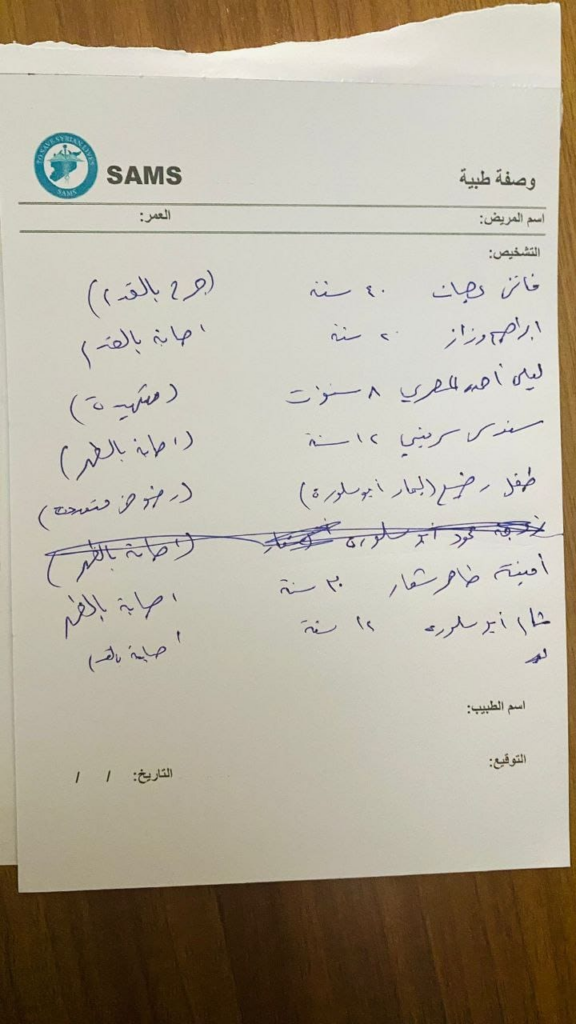 TO SAVE SYRIAN LIVES
SAMS
SAMS
وصفة طبية
اسم المريض: العمر:
التشخيص:
فاتن ٤٠ سنة (جرح بالقدم)
ابراهيم وزاز ٢٠ سنة اصابة بالقدم
ليلى أحمد المصري ٨ سنوات (شهيدة)
سندس سرميني ١٢ سنة (اصابة بالظهر)
طفل رضيع (ابو سلورة) (رضوض متعددة)
زوجة محمود ابو سلورة (اصابة بالظهر)
أمينة طاهر شعار ٣٠ سنة اصابة بالظهر
شام أبو سلورة ١٢ سنة اصابة بالقدم
اسم الطبيب:
التوقيع:
التاريخ: / /